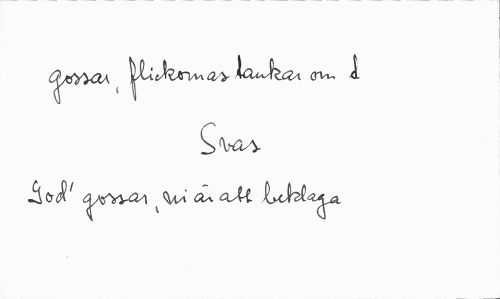 gossar, flickornas tankar om d
Svar
God' gossar, ni är att beklaga